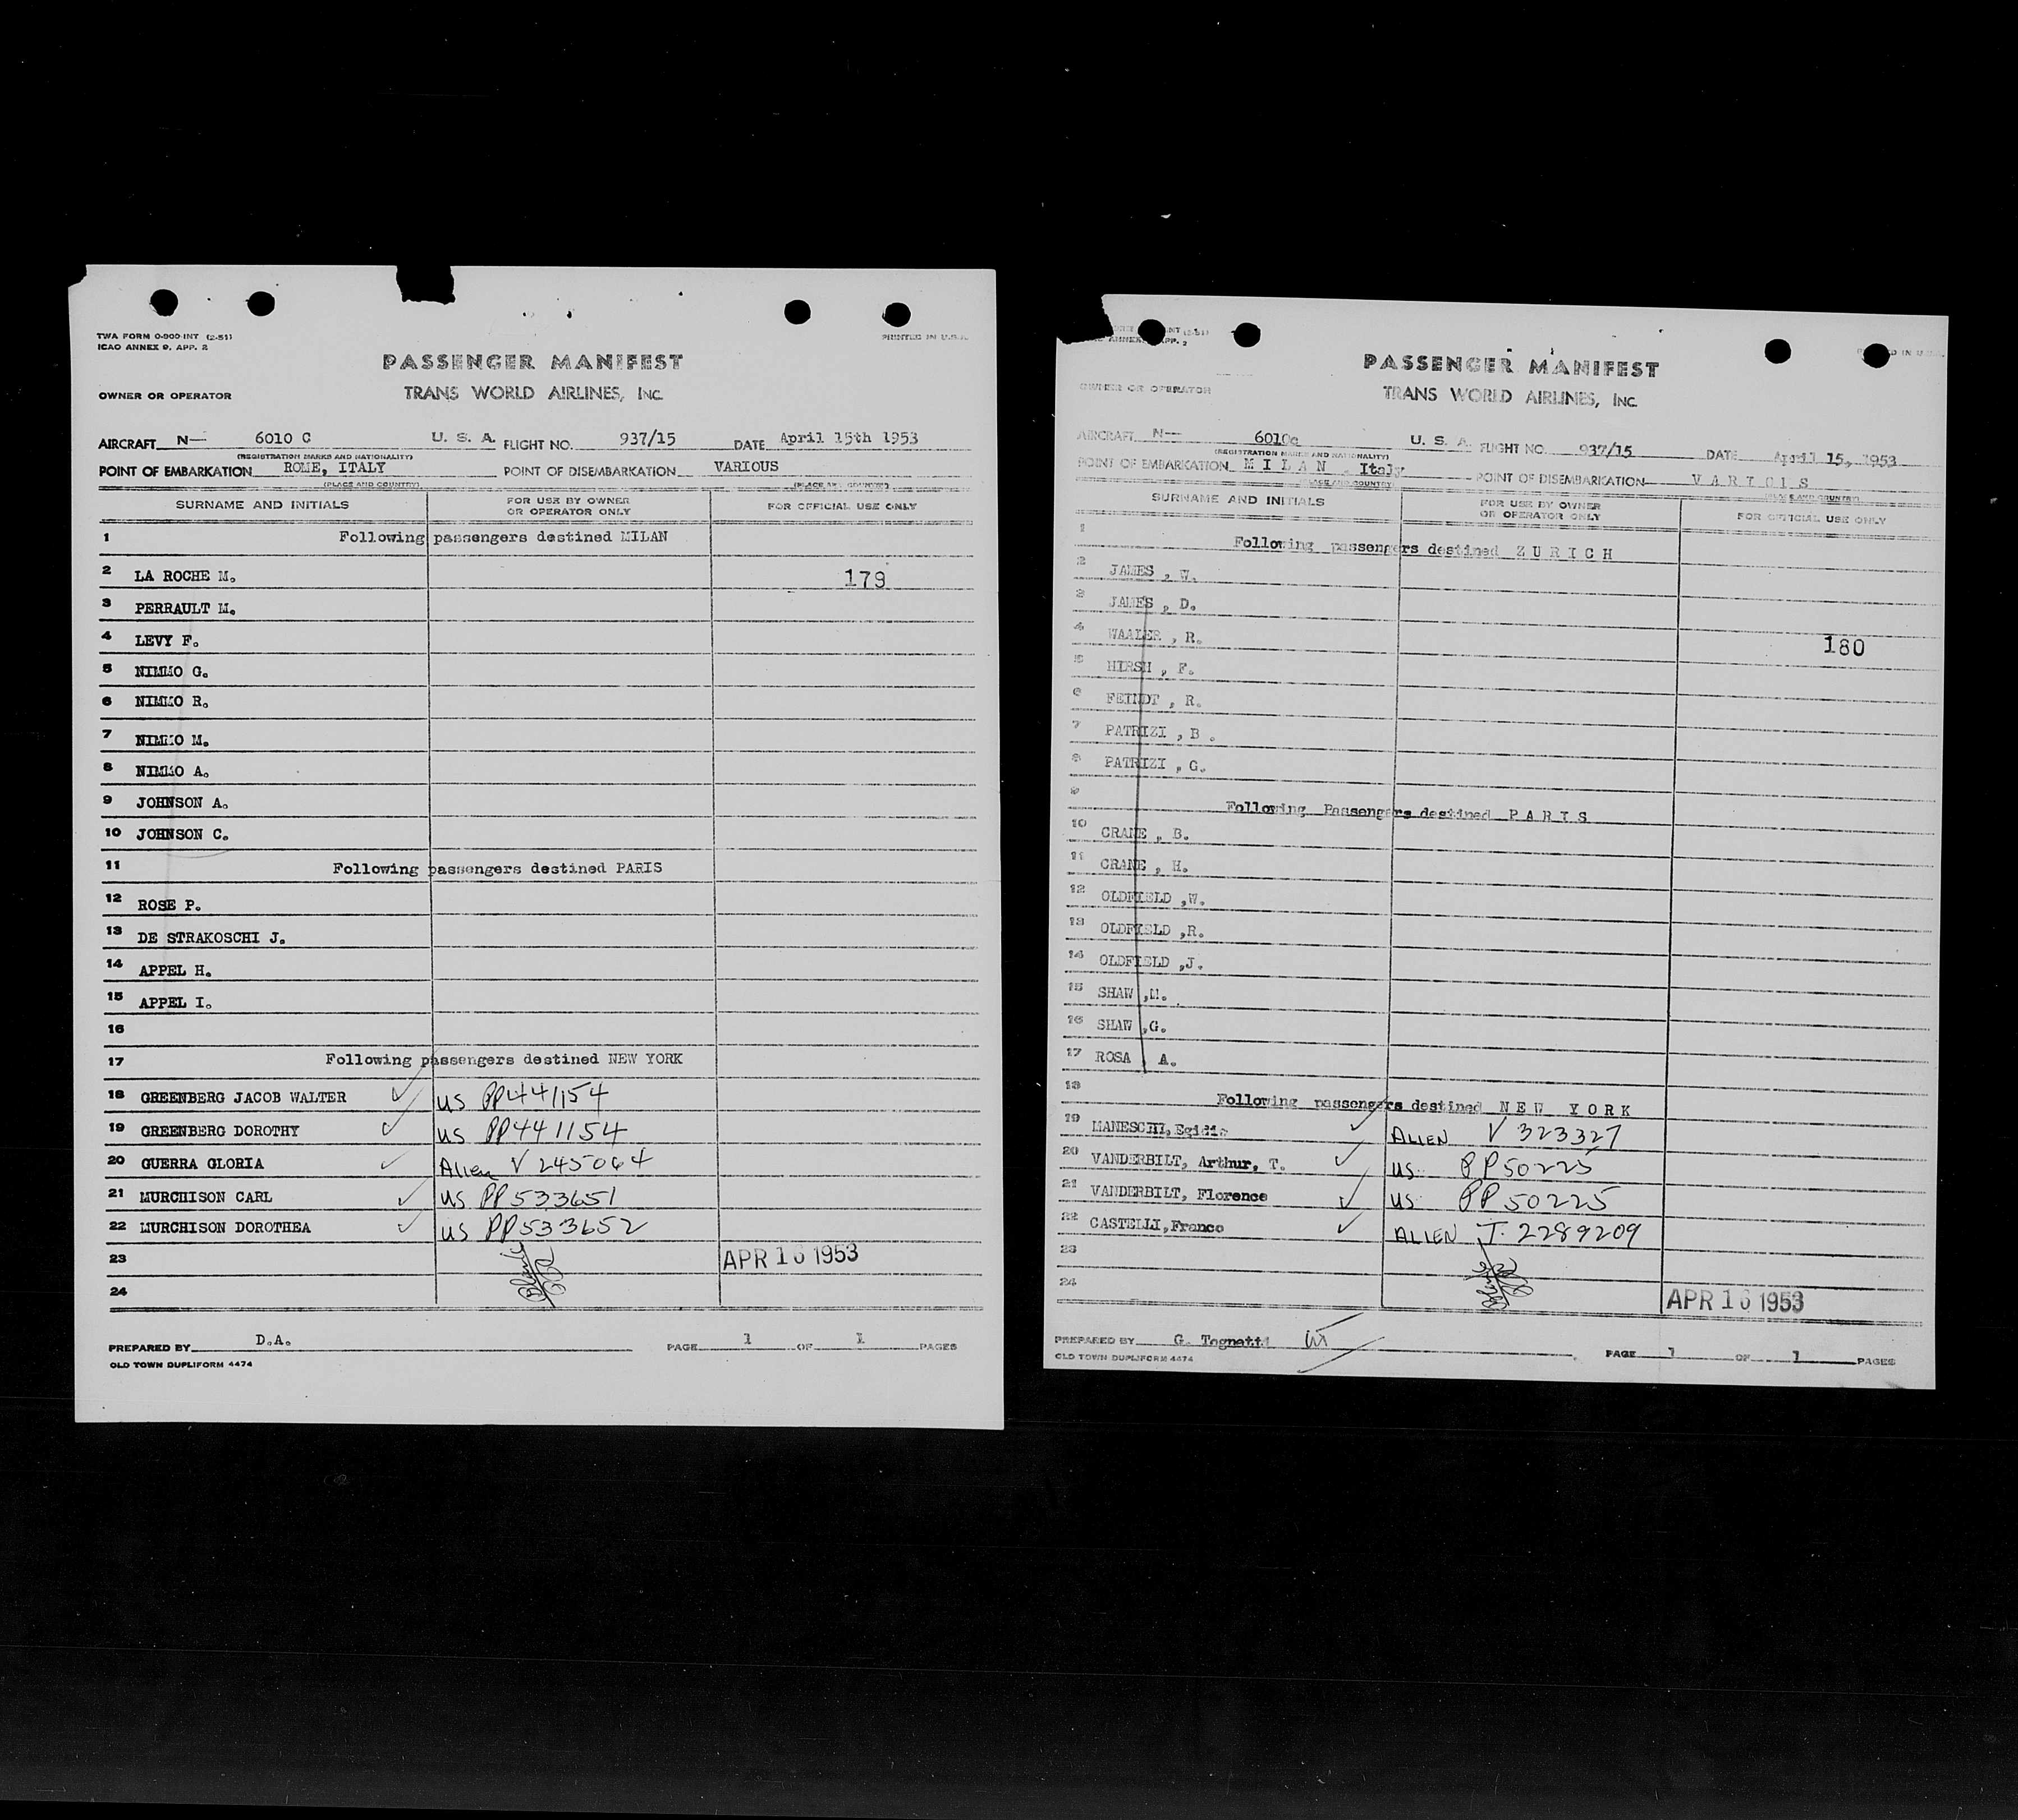 TWA FORM 0-900-INT (2-51)
ICAO ANNEX 9, APP. 2
PRINTED IN U.S.A.
PASSENGER MANIFEST
TRANS WORLD AIRLINES, INC.
OWNER OR OPERATOR
AIRCRAFT N— 6010 C U. S. A. FLIGHT NO. 937/15 DATE April 15th 1953
(REGISTRATION MARKS AND NATIONALITY)
POINT OF EMBARKATION ROME, ITALY POINT OF DISEMBARKATION VARIOUS
(PLACE AND COUNTRY) (PLACE AND COUNTRY)
SURNAME AND INITIALS FOR USE BY OWNER OR OPERATOR ONLY FOR OFFICIAL USE ONLY
1 Following passengers destined MILAN
2 LA ROCHE M. 179
3 PERRAULT M.
4 LEVY F.
5 NIMMO G.
6 NIMMO R.
7 NIMMO M.
8 NIMMO A.
9 JOHNSON A.
10 JOHNSON C.
11 Following passengers destined PARIS
12 ROSE P.
13 DE STRAKOSCHI J.
14 APPEL H.
15 APPEL I.
16
17 Following passengers destined NEW YORK
18 GREENBERG JACOB WALTER ✓ US PP441154
19 GREENBERG DOROTHY ✓ US PP441154
20 GUERRA GLORIA ✓ Alien V 245064
21 MURCHISON CARL ✓ US PP533651
22 MURCHISON DOROTHEA ✓ US PP533652
23 APR 16 1953
24
PREPARED BY D.A. PAGE 1 OF 1 PAGES
OLD TOWN DUPLIFORM 4474
INT (2-51)
ANNEX APP. 2
IN U.S.A.
PASSENGER MANIFEST
TRANS WORLD AIRLINES, INC.
OWNER OR OPERATOR
AIRCRAFT N— 6010c U. S. A. FLIGHT NO. 937/15 DATE April 15, 1953
(REGISTRATION MARKS AND NATIONALITY)
POINT OF EMBARKATION M I L A N - Italy POINT OF DISEMBARKATION V A R I O U S
(PLACE AND COUNTRY) (PLACE AND COUNTRY)
SURNAME AND INITIALS FOR USE BY OWNER OR OPERATOR ONLY FOR OFFICIAL USE ONLY
1 Following passengers destined Z U R I C H
2 JAMES , W.
3 JAMES , D.
4 WAALER , R. 180
5 HIRSH , F.
6 FEINDT , R.
7 PATRIZI , B .
8 PATRIZI , G.
9 Following Passengers destined P A R I S
10 CRANE , B.
11 CRANE , H.
12 OLDFIELD ,W.
13 OLDFIELD ,R.
14 OLDFIELD ,J.
15 SHAW ,M.
16 SHAW ,G.
17 ROSA , A.
18 Following passengers destined N E W Y O R K
19 MANESCHI, Egidio ✓ ALIEN V 323327
20 VANDERBILT, Arthur, T. ✓ US PP50225
21 VANDERBILT, Florence ✓ US PP50225
22 CASTELLI, Franco ✓ ALIEN I. 2289209
23
24 APR 16 1953
PREPARED BY G. Tognetti PAGE 1 OF 1 PAGES
OLD TOWN DUPLIFORM 4474